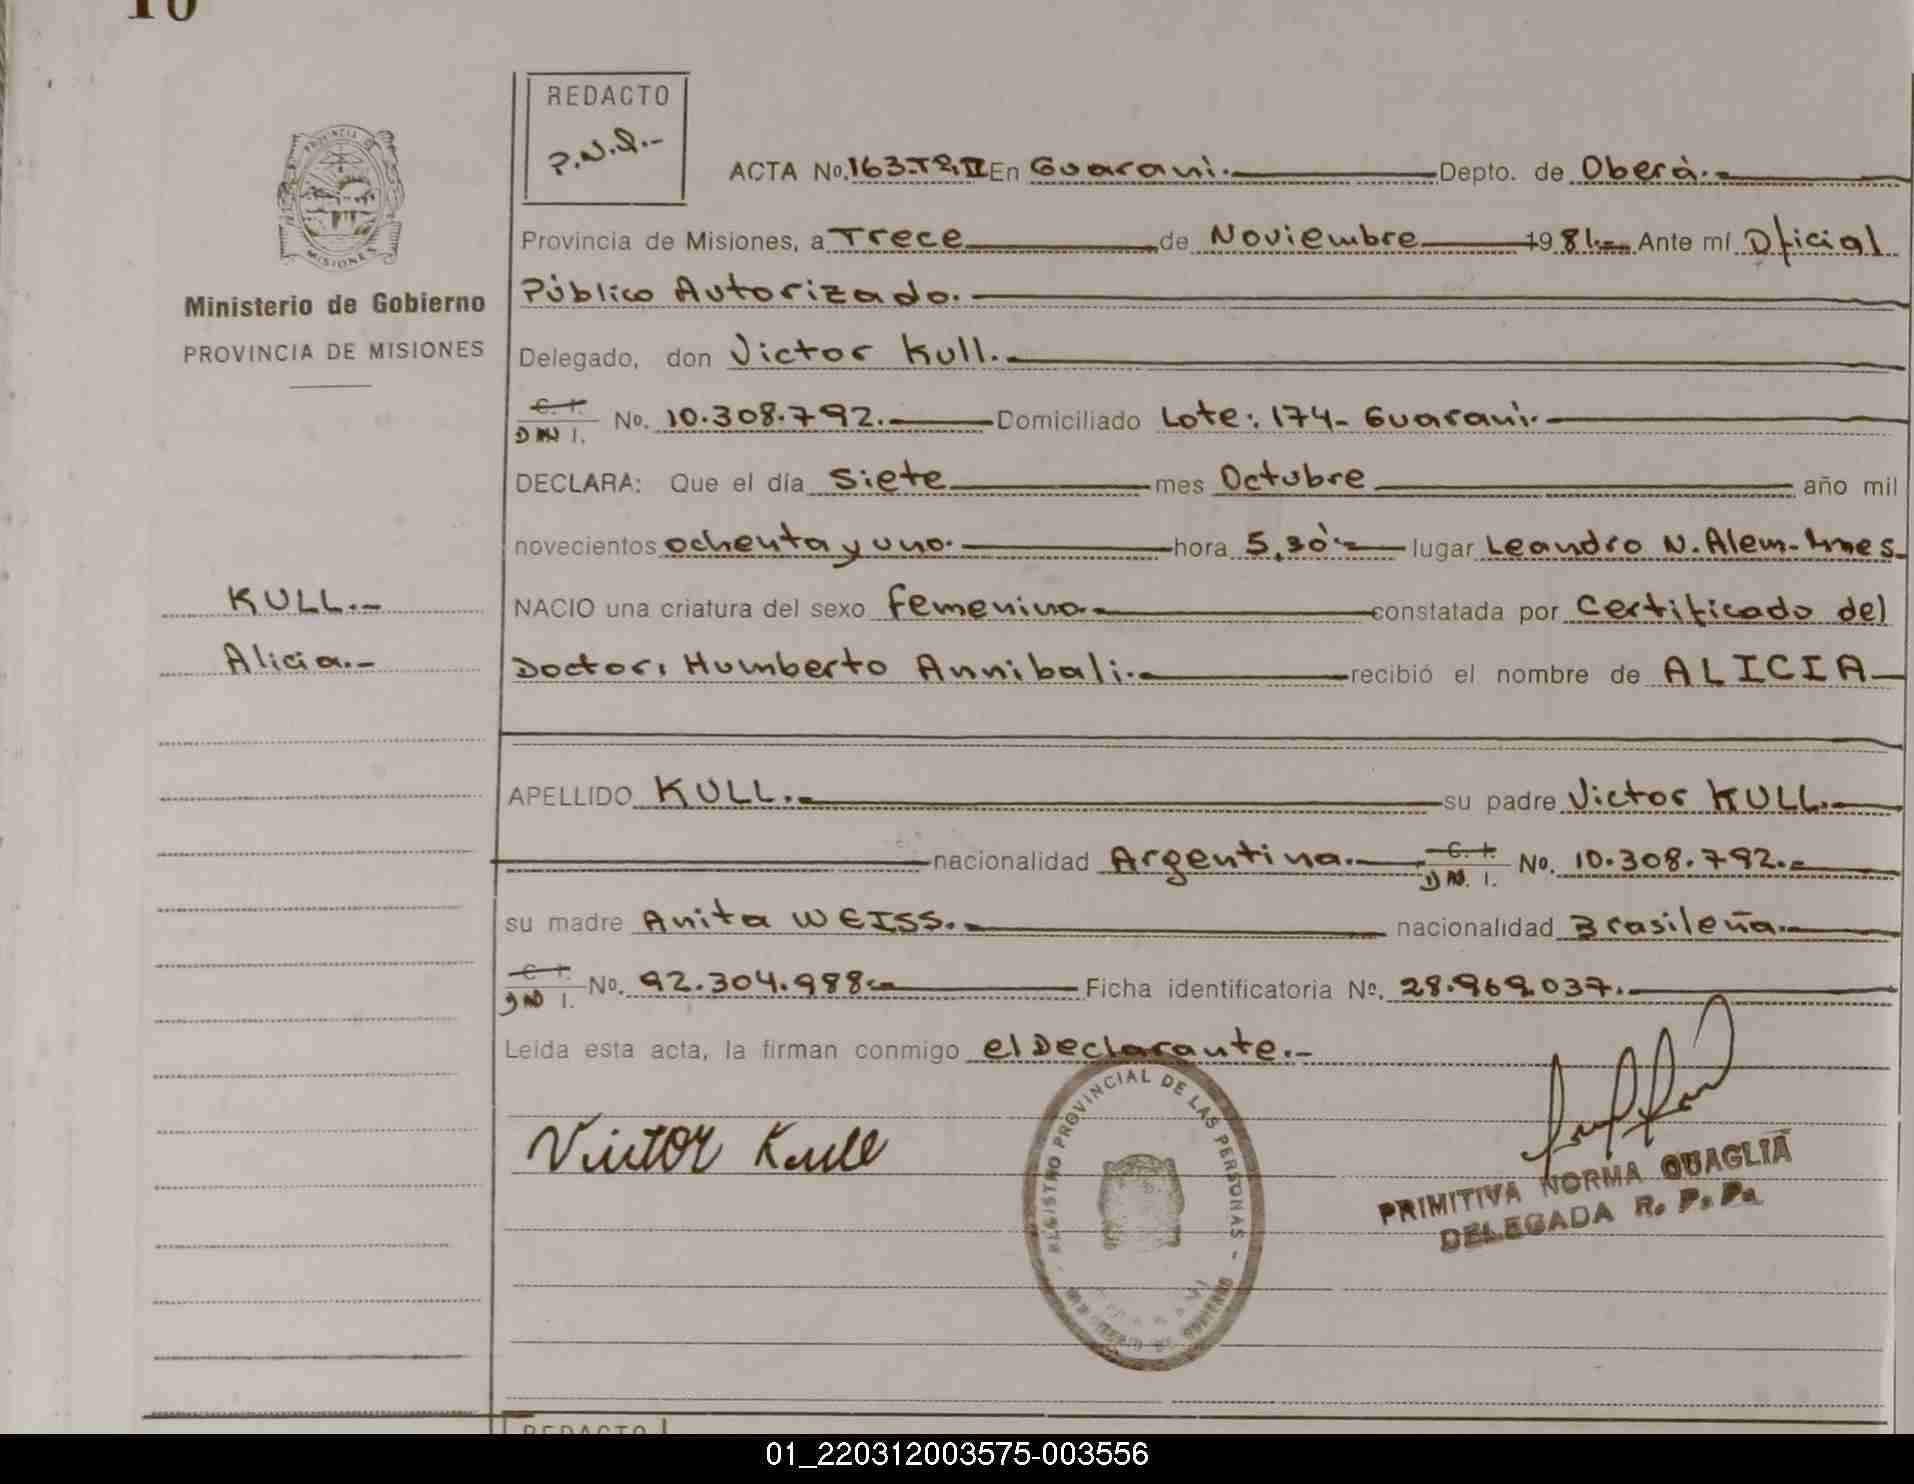 10
REDACTO
P.N.Q.-
PROVINCIA DE
MISIONES
Ministerio de Gobierno
PROVINCIA DE MISIONES
ACTA No. 163-Tº.II En Guaraní.- Depto. de Oberà.-
Provincia de Misiones, a Trece de Noviembre 1981.- Ante mí Oficial
Público Autorizado.-
Delegado, don Victor Kull.-
C. I. DNI. No. 10.308.792.- Domiciliado Lote: 174- Guaraní.-
DECLARA: Que el día siete mes Octubre año mil
novecientos ochenta y uno.- hora 5,30'- lugar Leandro N. Alem-Mnes-
KULL.- NACIO una criatura del sexo femenino.- constatada por Certificado del
Alicia.- Doctor: Humberto Annibali.- recibió el nombre de ALICIA
APELLIDO KULL.- su padre Victor KULL.-
nacionalidad Argentina.- C. I. DN. I. No. 10.308.792.-
su madre Anita WEISS.- nacionalidad Brasileña.-
C. I. DN I. No. 92.304.988.- Ficha identificatoria Nº. 28.969.037.-
Leida esta acta, la firman conmigo el Declarante.-
Victor Kull
REGISTRO PROVINCIAL DE LAS PERSONAS -
PRIMITIVA NORMA QUAGLIA
DELEGADA R. P. P.
REDACTO
01_220312003575-003556